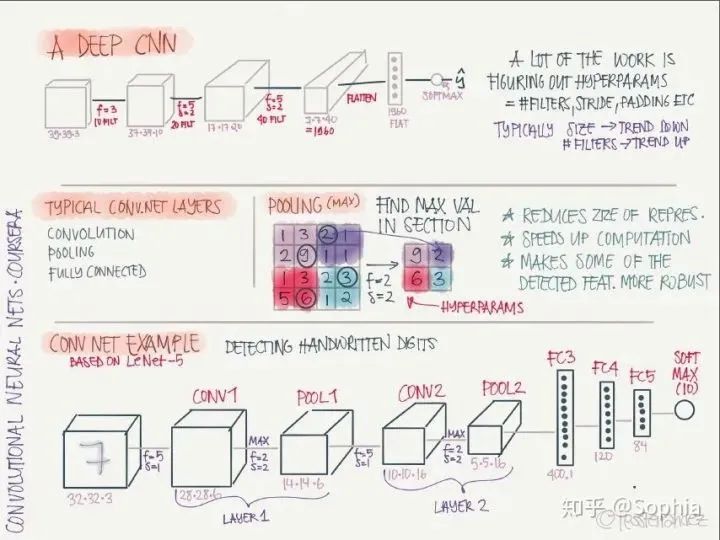 A DEEP CNN
39·39·3
f=3
10 FILT
37·37·10
f=5
s=2
20 FILT
17·17·20
f=5
s=2
40 FILT
7·7·40
=1960
FLATTEN
1960
FLAT
ŷ
SOFTMAX
A LOT OF THE WORK IS
FIGURING OUT HYPERPARAMS
= #FILTERS, STRIDE, PADDING ETC
TYPICALLY SIZE → TREND DOWN
#FILTERS → TREND UP
TYPICAL CONV.NET LAYERS
CONVOLUTION
POOLING
FULLY CONNECTED
POOLING (MAX)
1 3 2 1
2 9 1 1
1 3 2 3
5 6 1 2
FIND MAX VAL
IN SECTION
f=2
s=2
9 2
6 3
HYPERPARAMS
★ REDUCES SIZE OF REPRES.
★ SPEEDS UP COMPUTATION
★ MAKES SOME OF THE
DETECTED FEAT. MORE ROBUST
CONV NET EXAMPLE
BASED ON LeNet-5
DETECTING HANDWRITTEN DIGITS
7
32·32·3
f=5
s=1
CONV1
28·28·6
MAX
f=2
s=2
POOL1
14·14·6
LAYER 1
f=5
s=1
CONV2
10·10·16
MAX
f=2
s=2
POOL2
5·5·16
LAYER 2
FC3
400·1
FC4
120
FC5
84
SOFT
MAX
(10)
CONVOLUTIONAL NEURAL NETS · COURSERA
知乎 @Sophia